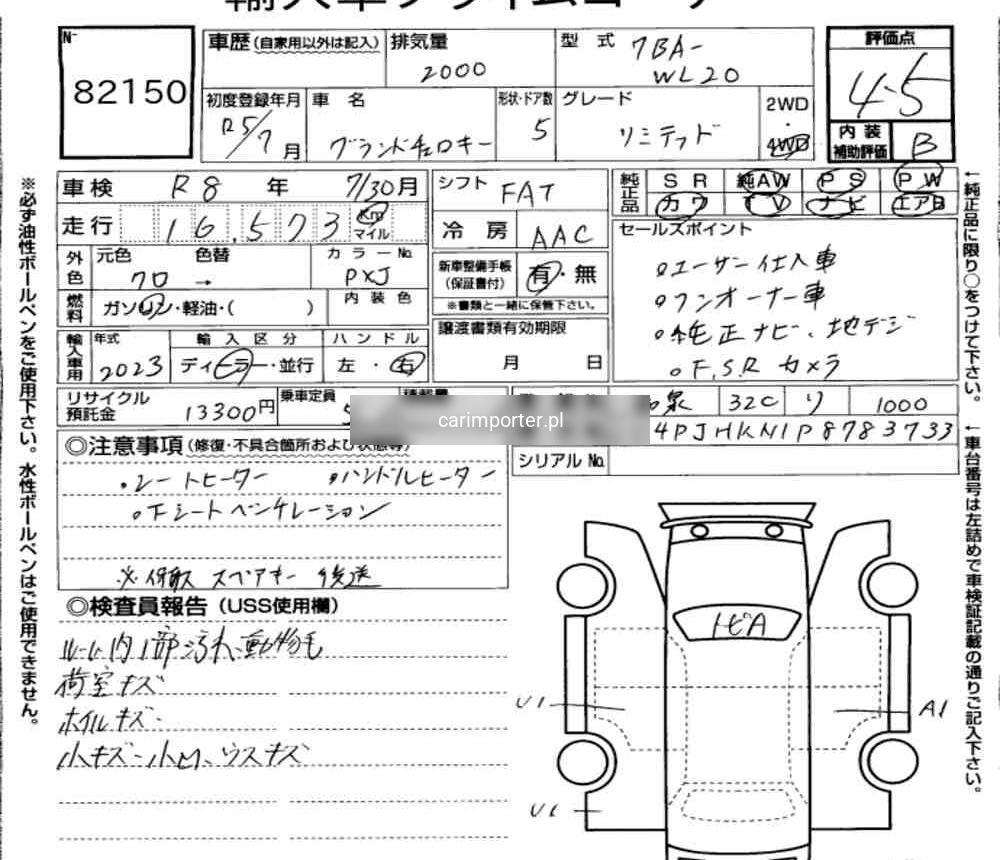 82150
車歴(自家用以外は記入)
排気量
2000
型 式
7BA-
WL20
評価点
4.5
内装
補助評価
B
初度登録年月
R5/7月
車 名
グランドチェロキー
形状・ドア数
5
グレード
リミテッド
2WD
・
4WD
車検 R8 年 7/30月
走行 16,573 Km マイル
シフト FAT
冷房 AAC
純正品
SR 純AW PS PW
カワ TV ナビ エアB
外色
元色 色替
クロ →
カラーNo.
PXJ
内装色
燃料
ガソリン・軽油・( )
新車整備手帳
(保証書付)
有・無
※書類と一緒に保管下さい。
セールスポイント
。ユーザー仕入車
。ワンオーナー車
。純正ナビ、地デジ
。F,S,R カメラ
輸入車用
年式
2023
輸入区分
ディーラー・並行
ハンドル
左・右
譲渡書類有効期限
月 日
リサイクル
預託金
13300円
乗車定員
泉 32C り 1000
carimporter.pl
4PJHKN1P8783733
シリアルNo.
◎注意事項(修復・不具合箇所および状態等)
。シートヒーター 。ハンドルヒーター
。Fシートベンチレーション
スペアキー 後送
◎検査員報告(USS使用欄)
ルーム内1部汚れ、動物毛
荷室キズ
ホイルキズ
小キズ・小凹、ウスキズ
トビA
U1
A1
U1
※必ず油性ボールペンをご使用下さい。水性ボールペンはご使用できません。
←純正品に限り○をつけて下さい。
←車台番号は左詰めで車検証記載の通りご記入下さい。